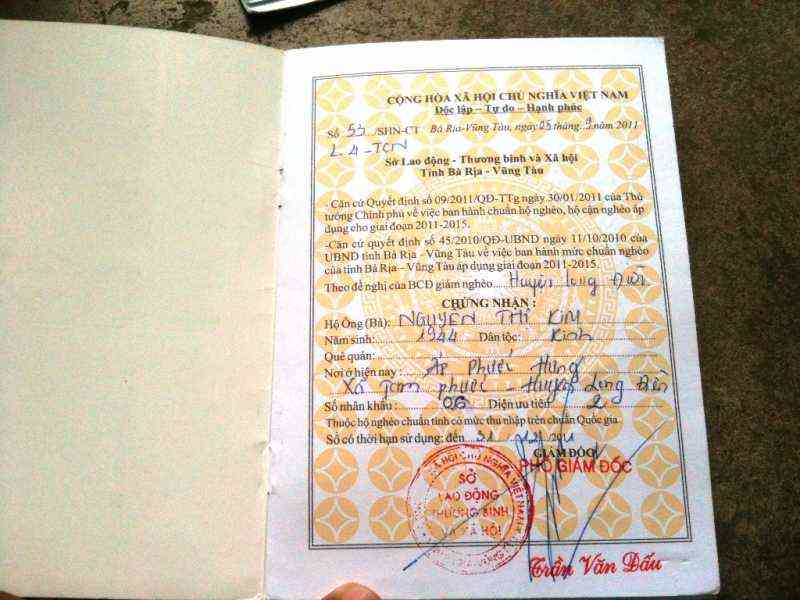 CỘNG HÒA XÃ HỘI CHỦ NGHĨA VIỆT NAM
Độc lập – Tự do – Hạnh phúc
Số 53 /SHN-CT Bà Rịa-Vũng Tàu, ngày 05 tháng 9 năm 2011
L.4-TCN
Sở Lao động - Thương binh và Xã hội
Tỉnh Bà Rịa - Vũng Tàu
- Căn cứ Quyết định số 09/2011/QĐ-TTg ngày 30/01/2011 của Thủ
tướng Chính phủ về việc ban hành chuẩn hộ nghèo, hộ cận nghèo áp
dụng cho giai đoạn 2011-2015.
-Căn cứ quyết định số 45/2010/QĐ-UBND ngày 11/10/2010 của
UBND tỉnh Bà Rịa - Vũng Tàu về việc ban hành mức chuẩn nghèo
của tỉnh Bà Rịa – Vũng Tàu áp dụng giai đoạn 2011-2015.
Theo đề nghị của BCĐ giảm nghèo Huyện Long Điền
CHỨNG NHẬN :
Hộ Ông (Bà): NGUYỄN THỊ KIM
Năm sinh: 1944 Dân tộc: Kinh
Quê quán:
Nơi ở hiện nay : Ấp Phước Hưng
Xã Tam Phước - Huyện Long Điền
Số nhân khẩu : 06 Diện ưu tiên 2
Thuộc hộ nghèo chuẩn tỉnh có mức thu nhập trên chuẩn Quốc gia
Sổ có thời hạn sử dụng: đến 31/12/2011
GIÁM ĐỐC
PHÓ GIÁM ĐỐC
SỞ
LAO ĐỘNG
THƯƠNG BINH
VÀ XÃ HỘI
Trần Văn Dấu